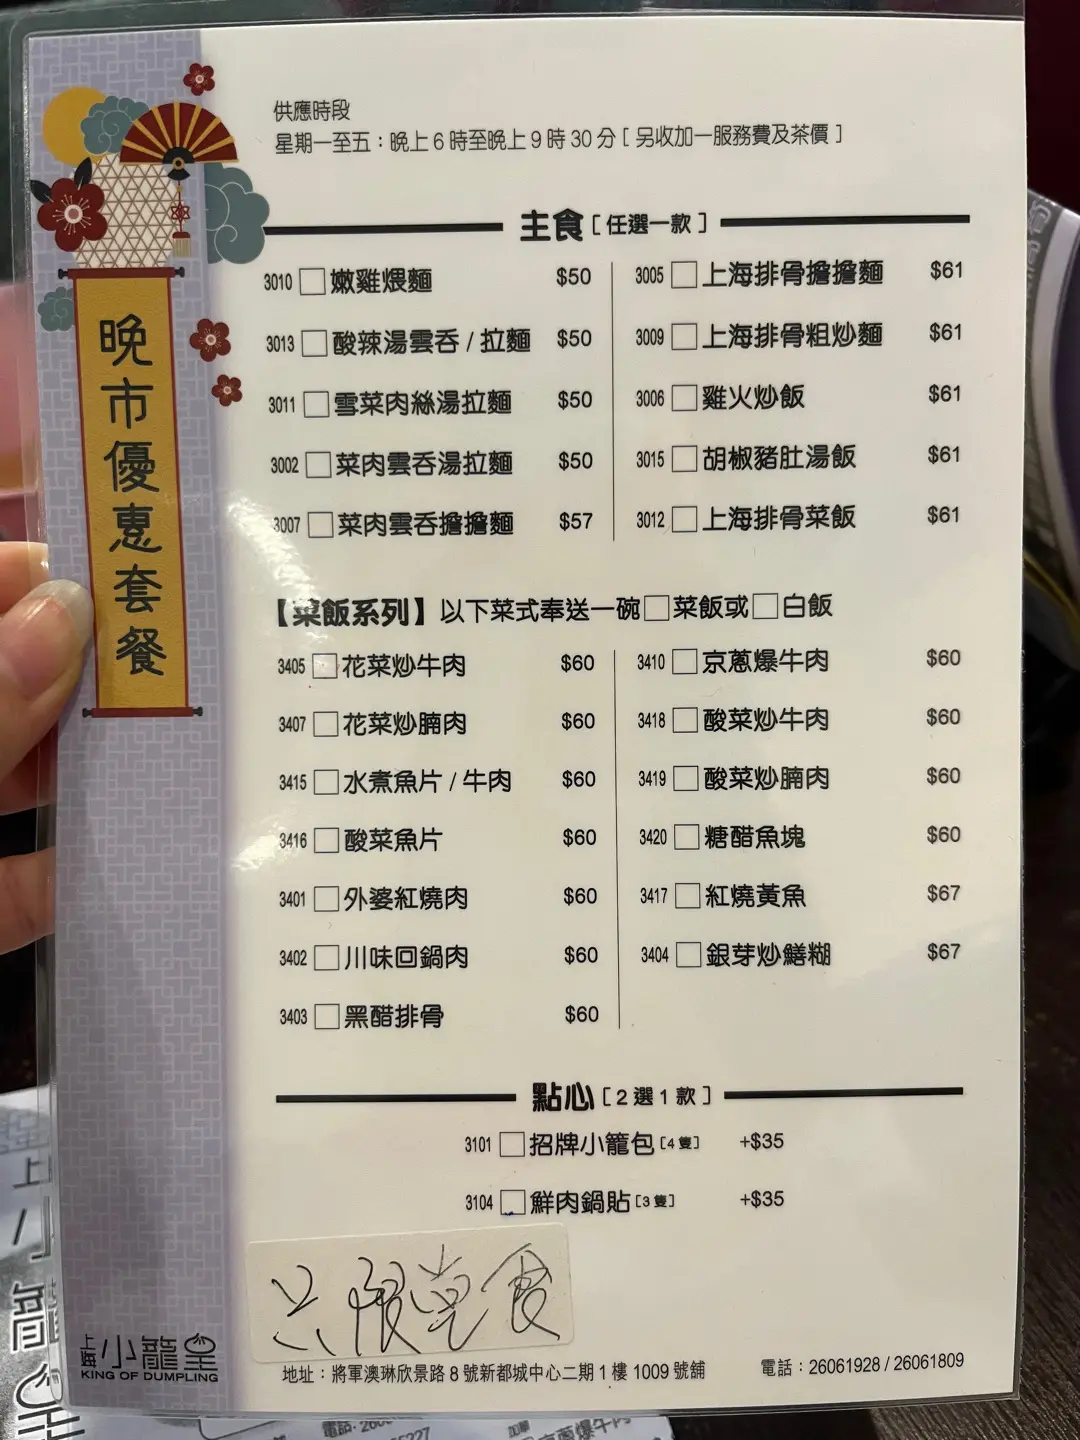 供應時段
星期一至五：晚上6時至晚上9時30分[另收加一服務費及茶價]
晚市優惠套餐
主食[任選一款]
3010 □嫩雞煨麵 $50
3013 □酸辣湯雲吞/拉麵 $50
3011 □雪菜肉絲湯拉麵 $50
3002 □菜肉雲吞湯拉麵 $50
3007 □菜肉雲吞擔擔麵 $57
3005 □上海排骨擔擔麵 $61
3009 □上海排骨粗炒麵 $61
3006 □雞火炒飯 $61
3015 □胡椒豬肚湯飯 $61
3012 □上海排骨菜飯 $61
【菜飯系列】以下菜式奉送一碗□菜飯或□白飯
3405 □花菜炒牛肉 $60
3407 □花菜炒腩肉 $60
3415 □水煮魚片/牛肉 $60
3416 □酸菜魚片 $60
3401 □外婆紅燒肉 $60
3402 □川味回鍋肉 $60
3403 □黑醋排骨 $60
3410 □京蔥爆牛肉 $60
3418 □酸菜炒牛肉 $60
3419 □酸菜炒腩肉 $60
3420 □糖醋魚塊 $60
3417 □紅燒黃魚 $67
3404 □銀芽炒鱔糊 $67
點心[2選1款]
3101 □招牌小籠包[4隻] +$35
3104 □鮮肉鍋貼[3隻] +$35
只限堂食
上海小籠皇
KING OF DUMPLING
地址：將軍澳琳欣景路8號新都城中心二期1樓1009號舖
電話：26061928 / 26061809